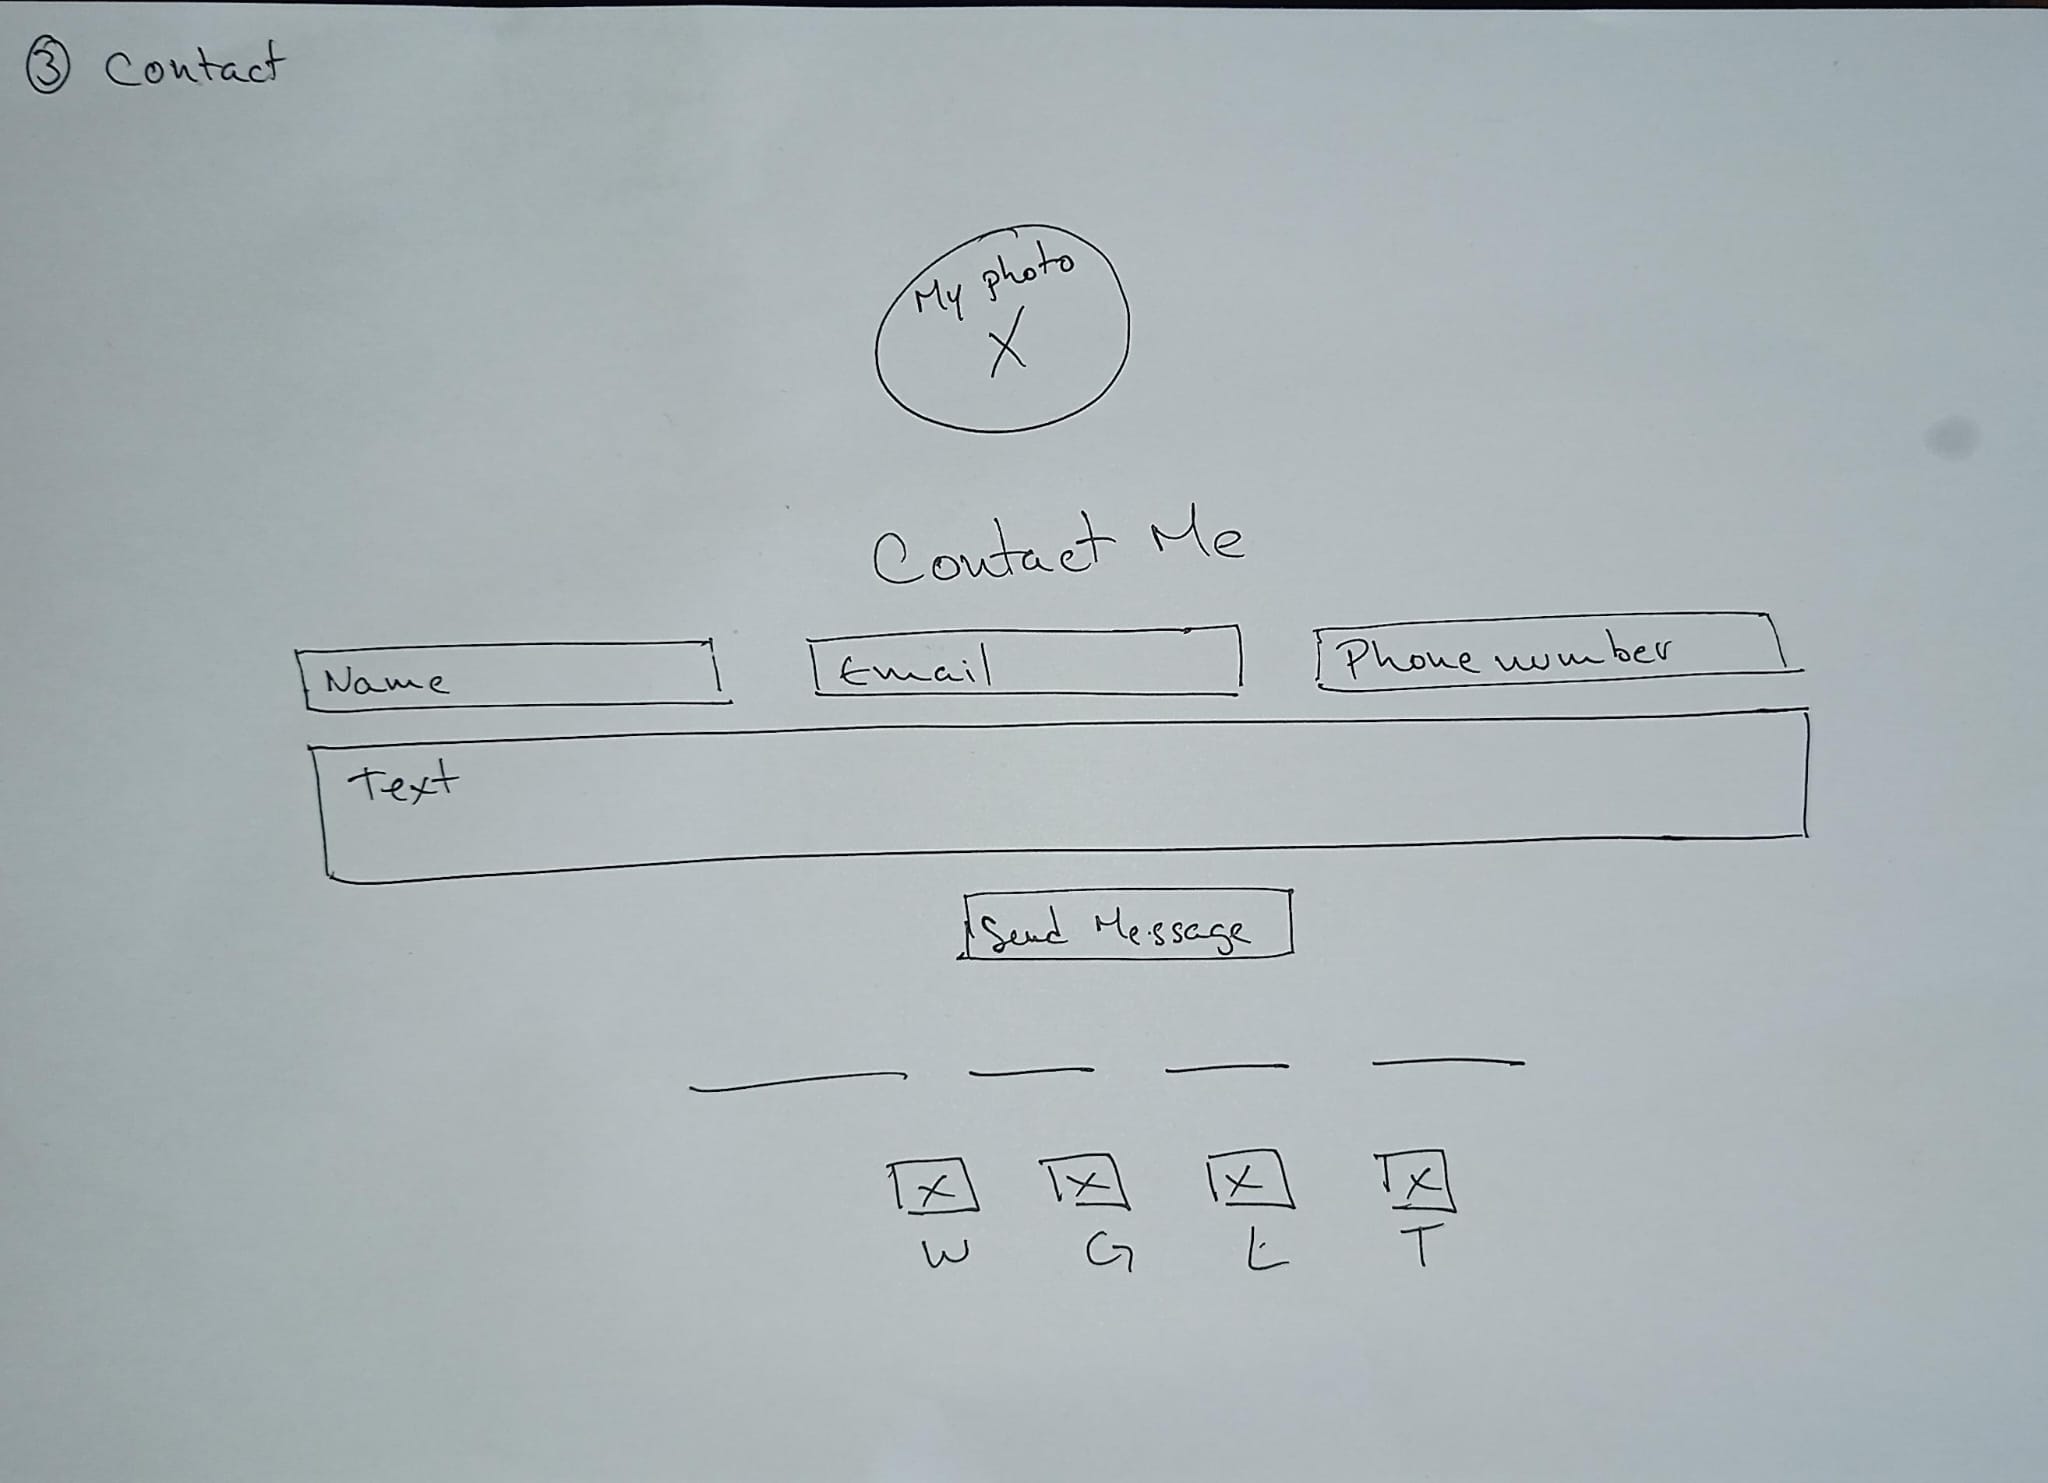 ③ Contact
My photo
X
Contact Me
Name Email Phone number
Text
Send Message
X X X X
W G L T